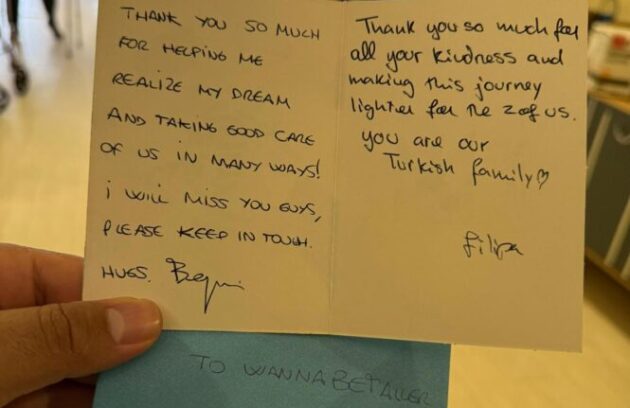 THANK YOU SO MUCH
FOR HELPING ME
REALIZE MY DREAM
AND TAKING GOOD CARE
OF US IN MANY WAYS!
i WILL MISS YOU GUYS,
PLEASE KEEP IN TOUCH.
HUGS.
Thank you so much for
all your kindness and
making this journey
lighter for the 2 of us.
you are our
Turkish family♡
filipa
TO WANNABETALLER